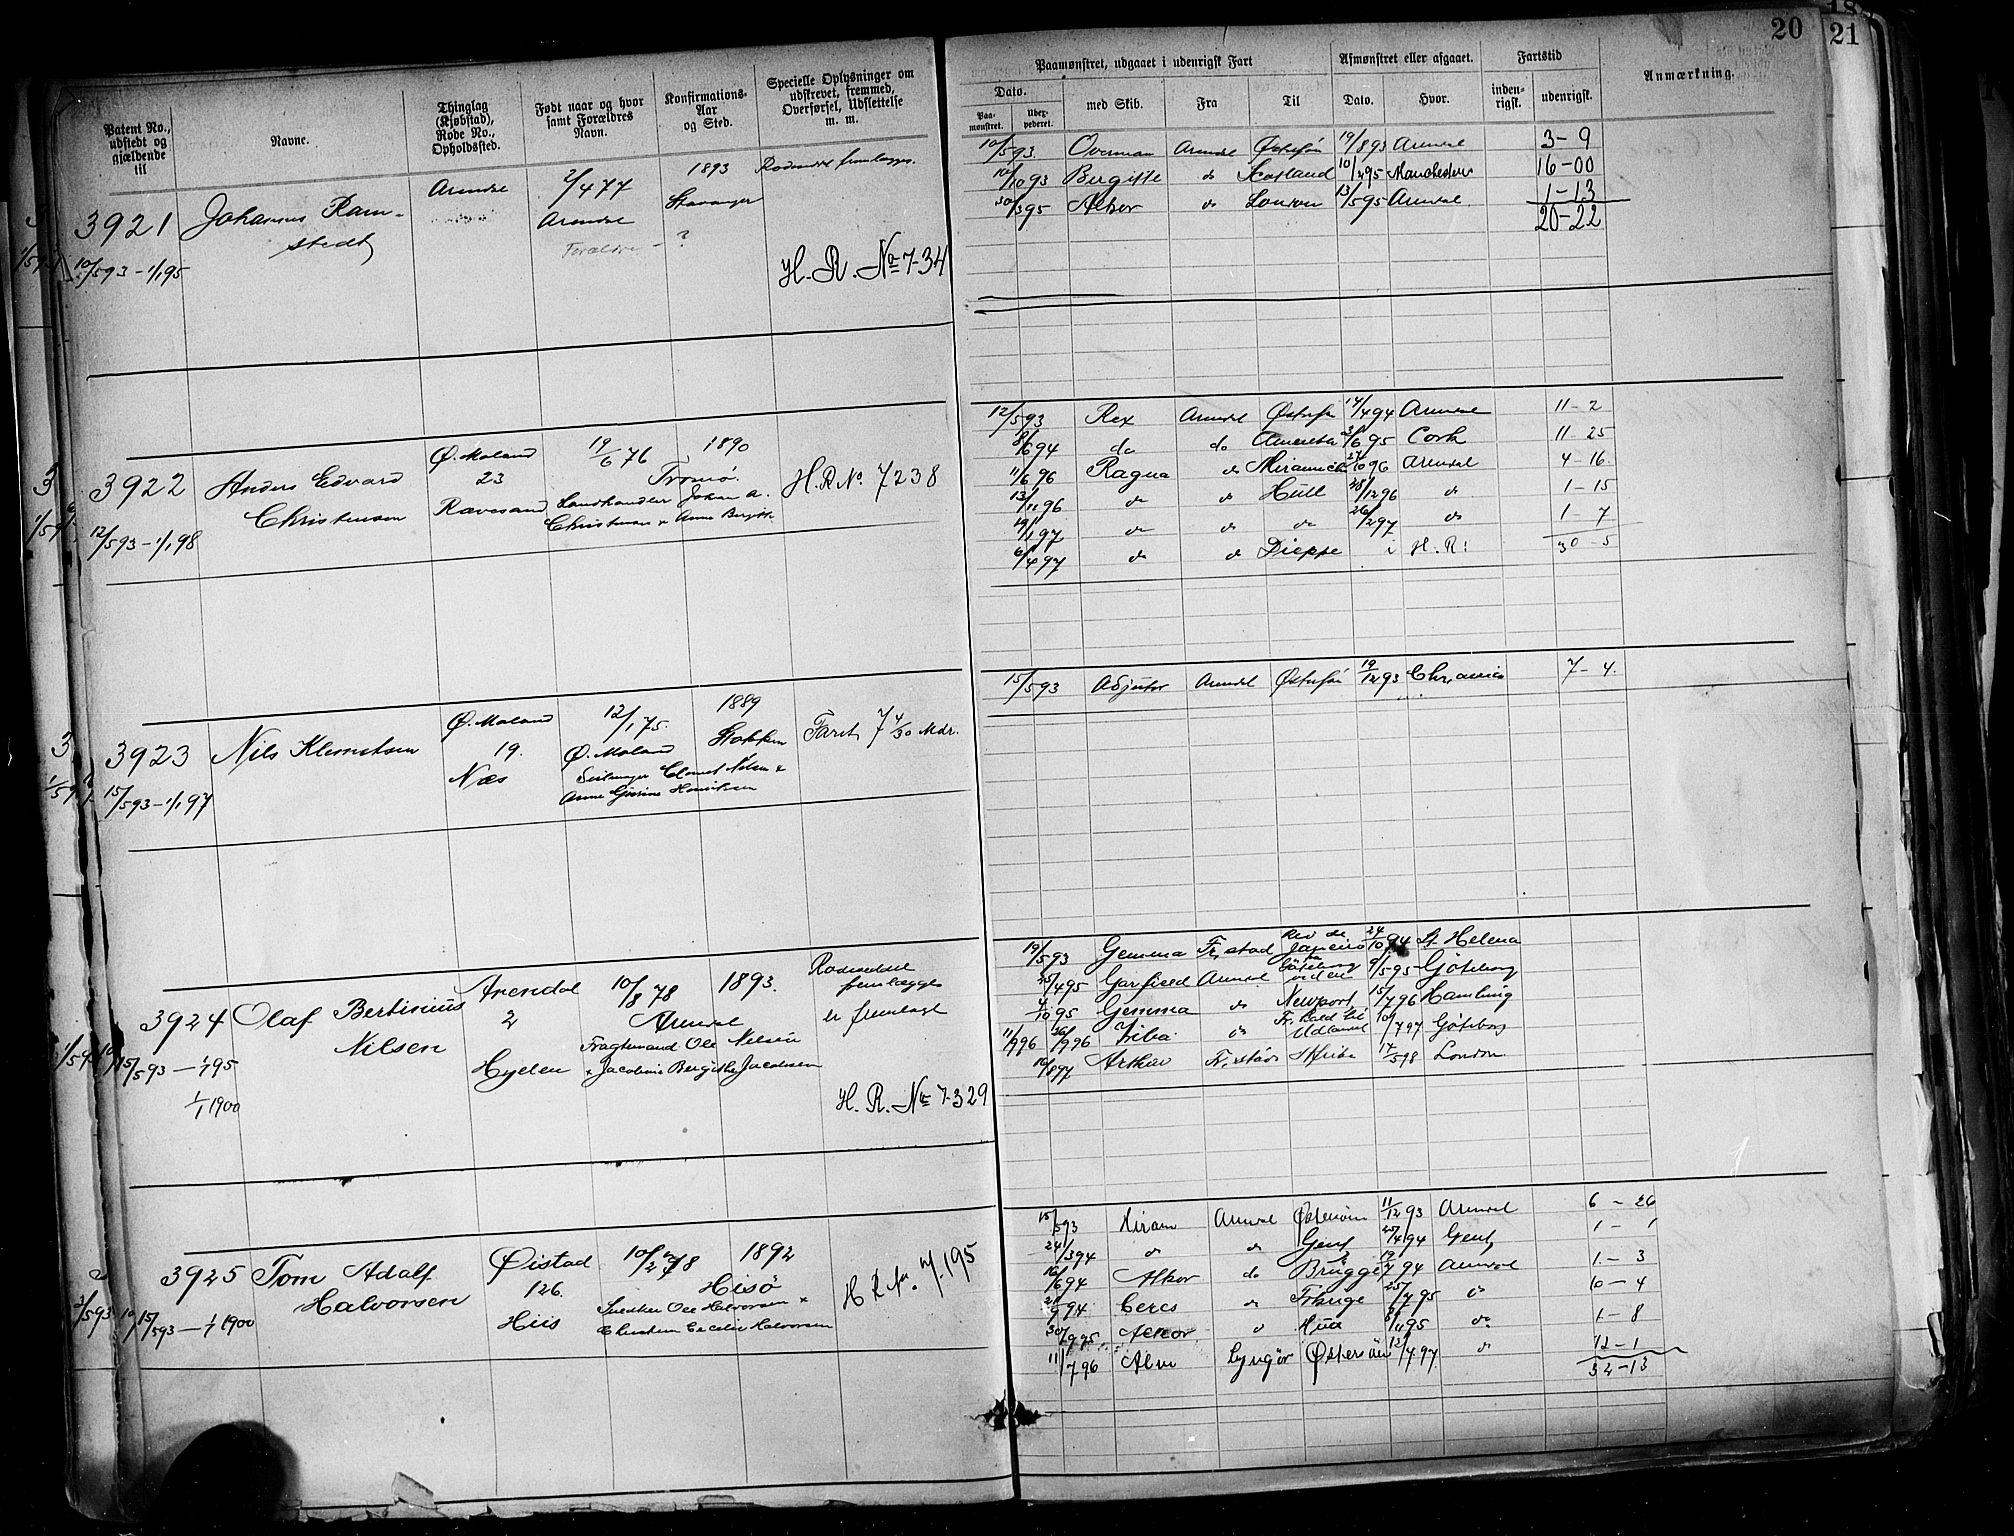 20
21
Patent No., udstedt og gjældende til
Navne.
Thinglag (Kjøbstad), Rode No., Opholdssted.
Født naar og hvor samt Forældres Navn.
Konfirmations-Aar og Sted.
Specielle Oplysninger om udskrevet, fremmed, Overførsel, Udslettelse m. m.
Paamønstret, udgaaet i udenrigsk Fart
Afmønstret eller afgaaet.
Fartstid
Anmærkning.
Dato.
med Skib.
Fra
Til
Dato.
Hvor.
inden-rigsk.
udenrigsk.
Paa-mønstret.
3921 Johannes Ram-
stedt
10/5 93 - 1/1 95
Arendal
2/4 77
Arendal
Forældre - ?
1893
Stavanger
Rodeseddel fremlægges.
H. R. No 7-34
10/5 93. Overman Arendal Østersjön 19/8 93 Arendal 3-9
10/10 93 Birgitte do Scotland 10/2 95 Manchester 16-00
30/3 95 Alkor do London 13/5 95 Arendal 1-13
20-22
3922 Anders Edvard
Christensen
12/5 93 - 1/1 98
Ø. Moland
23
Ravesand
19/6 76
1890
Tromø.
Landhandler Johan A.
Christensen & Anne Birgitte
H. R. No. 7238
12/5 93 Rex Arendal 14/4 94 Arendal 11-2
8/6 94 do do Amerika 2/6 95 Cork 11-25
11/6 96 Ragna do Miramichi 27/10 96 Arendal 4-16
13/11 96 do do Hull 28/12 96 do 1-15
19/1 97 do do do 26/2 97 do 1-7
6/4 97 do do Dieppe i H. R: 30-5
3923 Nils Klemetsen
15/5 93 - 1/1 97
Ø. Moland
19.
Næs
12/1 75.
Ø. Moland
1889
Stokken
Seilmager Clemet Nilsen &
Anne Henriksen
Fart 7 4/30 Mdr.
15/5 93 Adjutor Arendal 19/12 93 Chr.ania 7-4.
3924 Olaf Bertinius
Nilsen
15/5 93 - 1/1 95
1/1 1900
Arendal
2
Hyelen
10/8 78
Arendal
Fragtemand Ole Nilsen
& Jacobine Bergithe Jacobsen
1893.
Rodeseddel
fremlægges
er fremlagt
H. R. No 7-329
19/5 93 Gemma Fr.stad Rio de Janeiro 24/10 94 St Helena
25/4 95 Garfield Arendal Göteborg 9/5 95 Göteborg
4/10 95 Gemma do Newport 15/7 96 Hamburg
11/9 96 26/9 96 do Udlandet /7 97 Göteborg
16/8 97 Arthur Fr.stad Afrika 17/5 98 London
3925 Tom Adolf
Halvorsen
15/5 93 - 1/1 1900
Øistad
126.
Hiis
10/2 78
1892
Hisø
Snedker Ole Halvorsen &
Christine Cecilie Halvorsen
H R No. 7-195
15/5 93 Hiram Arendal 11/12 93 Arendal 6-26
24/3 94 do do Gent 25/4 94 Gent 1-1
16/6 94 Alkor do Brügge 19/7 94 Arendal 1-3
Ceres do 25/7 95 do 10-4
30/9 95 Alkor do Hull 8/11 95 do 1-8
11/7 96 Alm Lyngör Østersöen 12/7 97 do 12-1
32-13